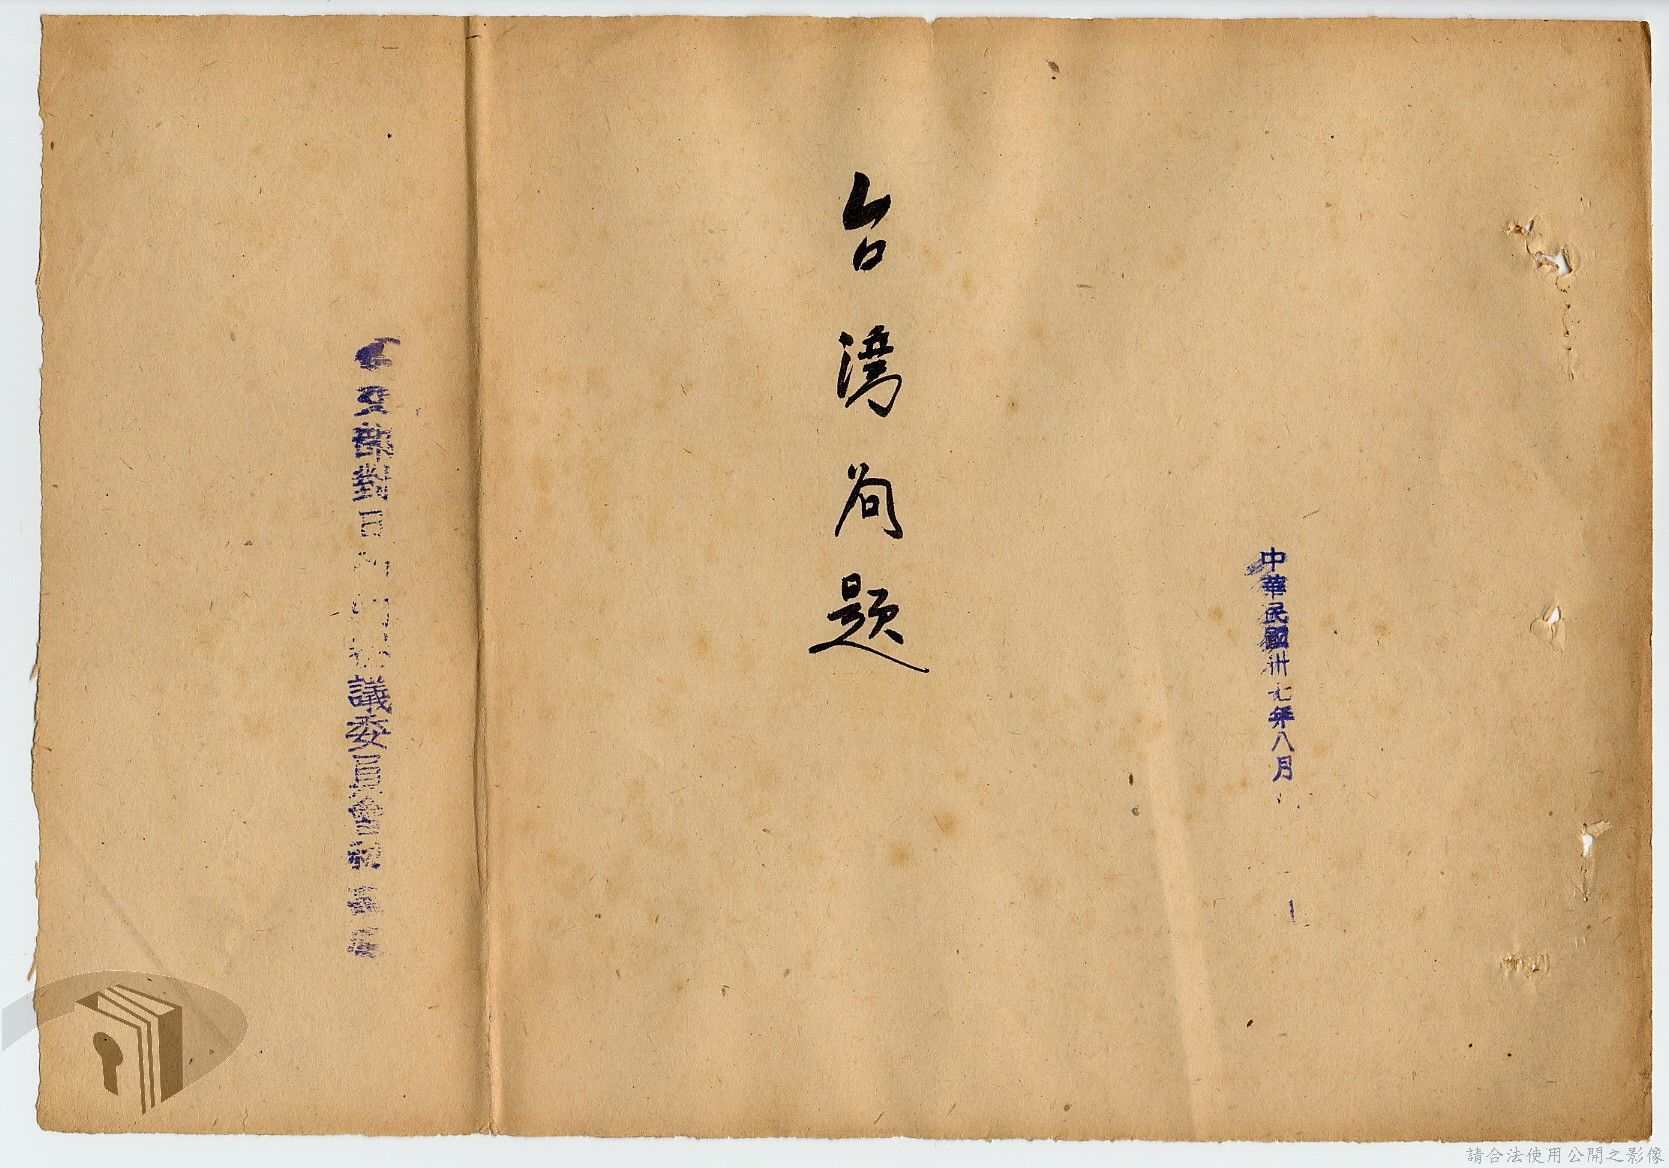 中華民國卅七年八月
台灣問題
部對日
議委員會
請合法使用公開之影像